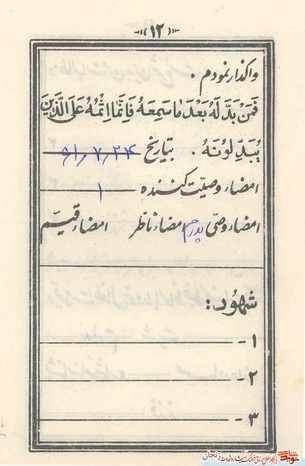 «۱۲»
واگذار نمودم .
فَمَنْ بَدَّلَهُ بَعْدَ مٰا سَمِعَهُ فَاِنَّمٰا اِثْمُهُ عَلَى الَّذِينَ
يُبَدِّلُونَهُ . بتاریخ ۶۱٫۷٫۲۴
امضاء وصیّت کننده ۱
امضاء وصی پدرم امضاء ناظر امضاء قیّم
شهُود:
۱-
۲-
۳-